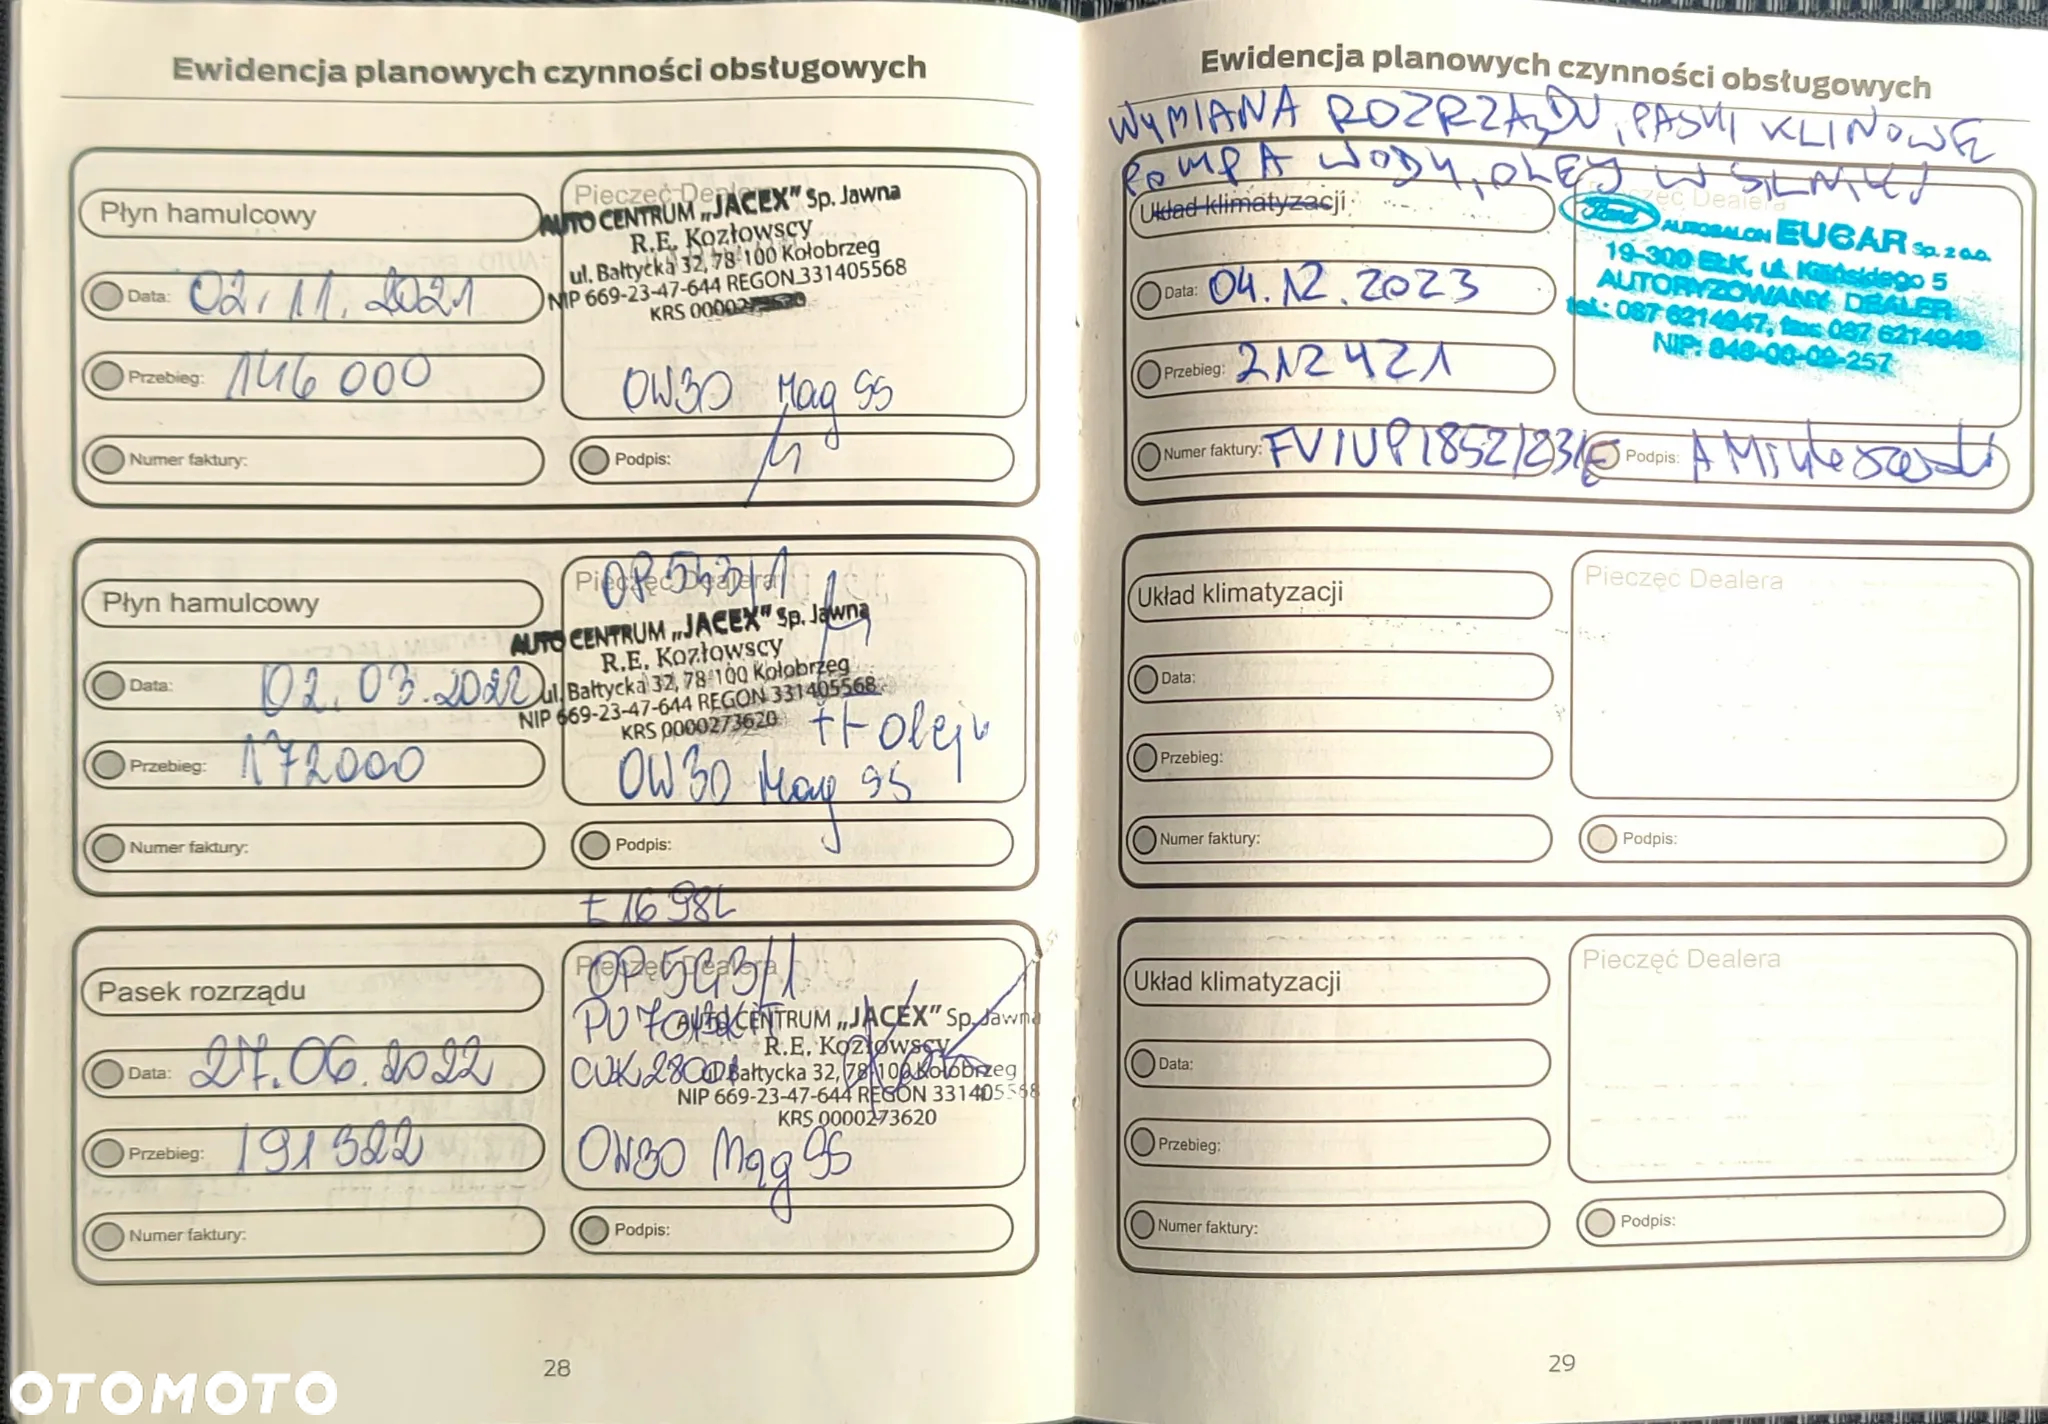 Ewidencja planowych czynności obsługowych
Płyn hamulcowy
Data: 02.11.2021
Przebieg: 146 000
Numer faktury:
Pieczęć Dealera
AUTO CENTRUM „JACEX" Sp. Jawna
R.E. Kozłowscy
ul. Bałtycka 32, 78-100 Kołobrzeg
NIP 669-23-47-644 REGON 331405568
KRS 0000273620
0W30 Mag 95
Podpis:
Płyn hamulcowy
Data: 02.03.2022
Przebieg: 172000
Numer faktury:
Pieczęć Dealera
OP 543/1
AUTO CENTRUM „JACEX" Sp. Jawna
R.E. Kozłowscy
ul. Bałtycka 32, 78-100 Kołobrzeg
NIP 669-23-47-644 REGON 331405568
KRS 0000273620
+F oleju
0W30 Mag 95
Podpis:
E1698L
Pasek rozrządu
Data: 27.06.2022
Przebieg: 191322
Numer faktury:
Pieczęć Dealera
OP 543/1
AUTO CENTRUM „JACEX" Sp. Jawna
R.E. Kozłowscy
ul. Bałtycka 32, 78-100 Kołobrzeg
NIP 669-23-47-644 REGON 331405568
KRS 0000273620
0W30 Mag 95
Podpis:
28
OTOMOTO
Ewidencja planowych czynności obsługowych
WYMIANA ROZRZĄDU, PASKI KLINOWE
POMPA WODY, OLEJ W SILNIKU
Układ klimatyzacji
Data: 04.12.2023
Przebieg: 212421
Numer faktury: FV/UP/852/23/E
Pieczęć Dealera
Ford AUTOSALON EUCAR Sp. z o.o.
19-300 EŁK, ul. Kajki 5
AUTORYZOWANY DEALER
tel.: 087 6214947, fax 087 6214948
NIP: 848-00-09-257
Podpis:
Układ klimatyzacji
Data:
Przebieg:
Numer faktury:
Pieczęć Dealera
Podpis:
Układ klimatyzacji
Data:
Przebieg:
Numer faktury:
Pieczęć Dealera
Podpis:
29